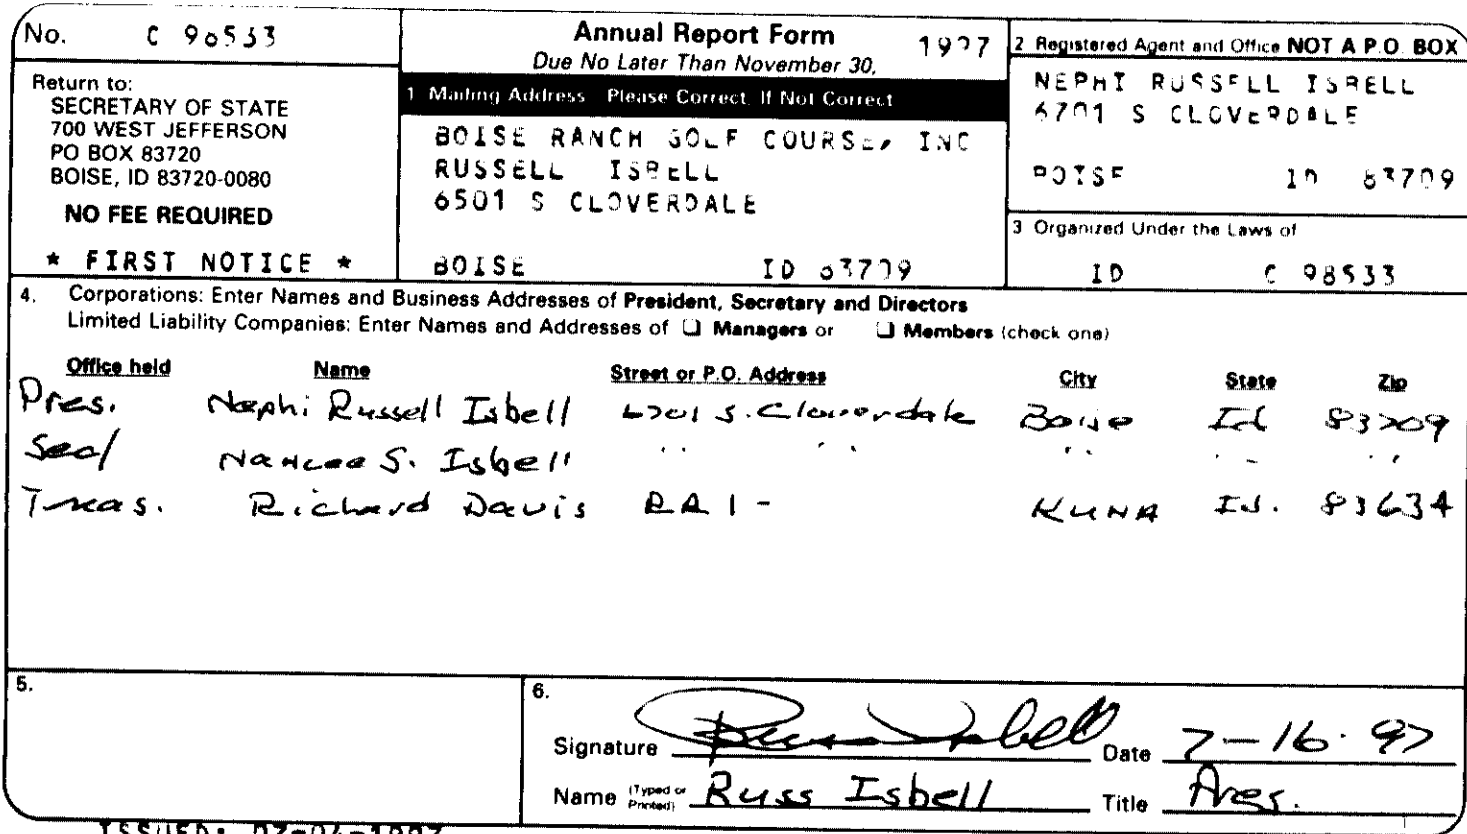 No. C 98533
Annual Report Form 1997
Due No Later Than November 30,
Return to:
SECRETARY OF STATE
700 WEST JEFFERSON
PO BOX 83720
BOISE, ID 83720-0080
NO FEE REQUIRED
* FIRST NOTICE *
1 Mailing Address Please Correct, If Not Correct
BOISE RANCH GOLF COURSE, INC
RUSSELL ISBELL
6501 S CLOVERDALE
BOISE ID 83709
2 Registered Agent and Office NOT A P.O. BOX
NEPHI RUSSELL ISBELL
6701 S CLOVERDALE
BOISE ID 83709
3 Organized Under the Laws of
ID C 98533
4. Corporations: Enter Names and Business Addresses of President, Secretary and Directors
Limited Liability Companies: Enter Names and Addresses of ❑ Managers or ❑ Members (check one)
Office held Name Street or P.O. Address City State Zip
Pres. Nephi Russell Isbell 6701 S. Cloverdale Boise Id 83709
Sec/ Nancee S. Isbell " " " " "
Treas. Richard Davis RR 1 - KUNA Id. 83634
5.
6.
Signature Russ Isbell Date 7-16-97
Name (Typed or Printed) Russ Isbell Title Pres.
ISSUED: 07-04-1997